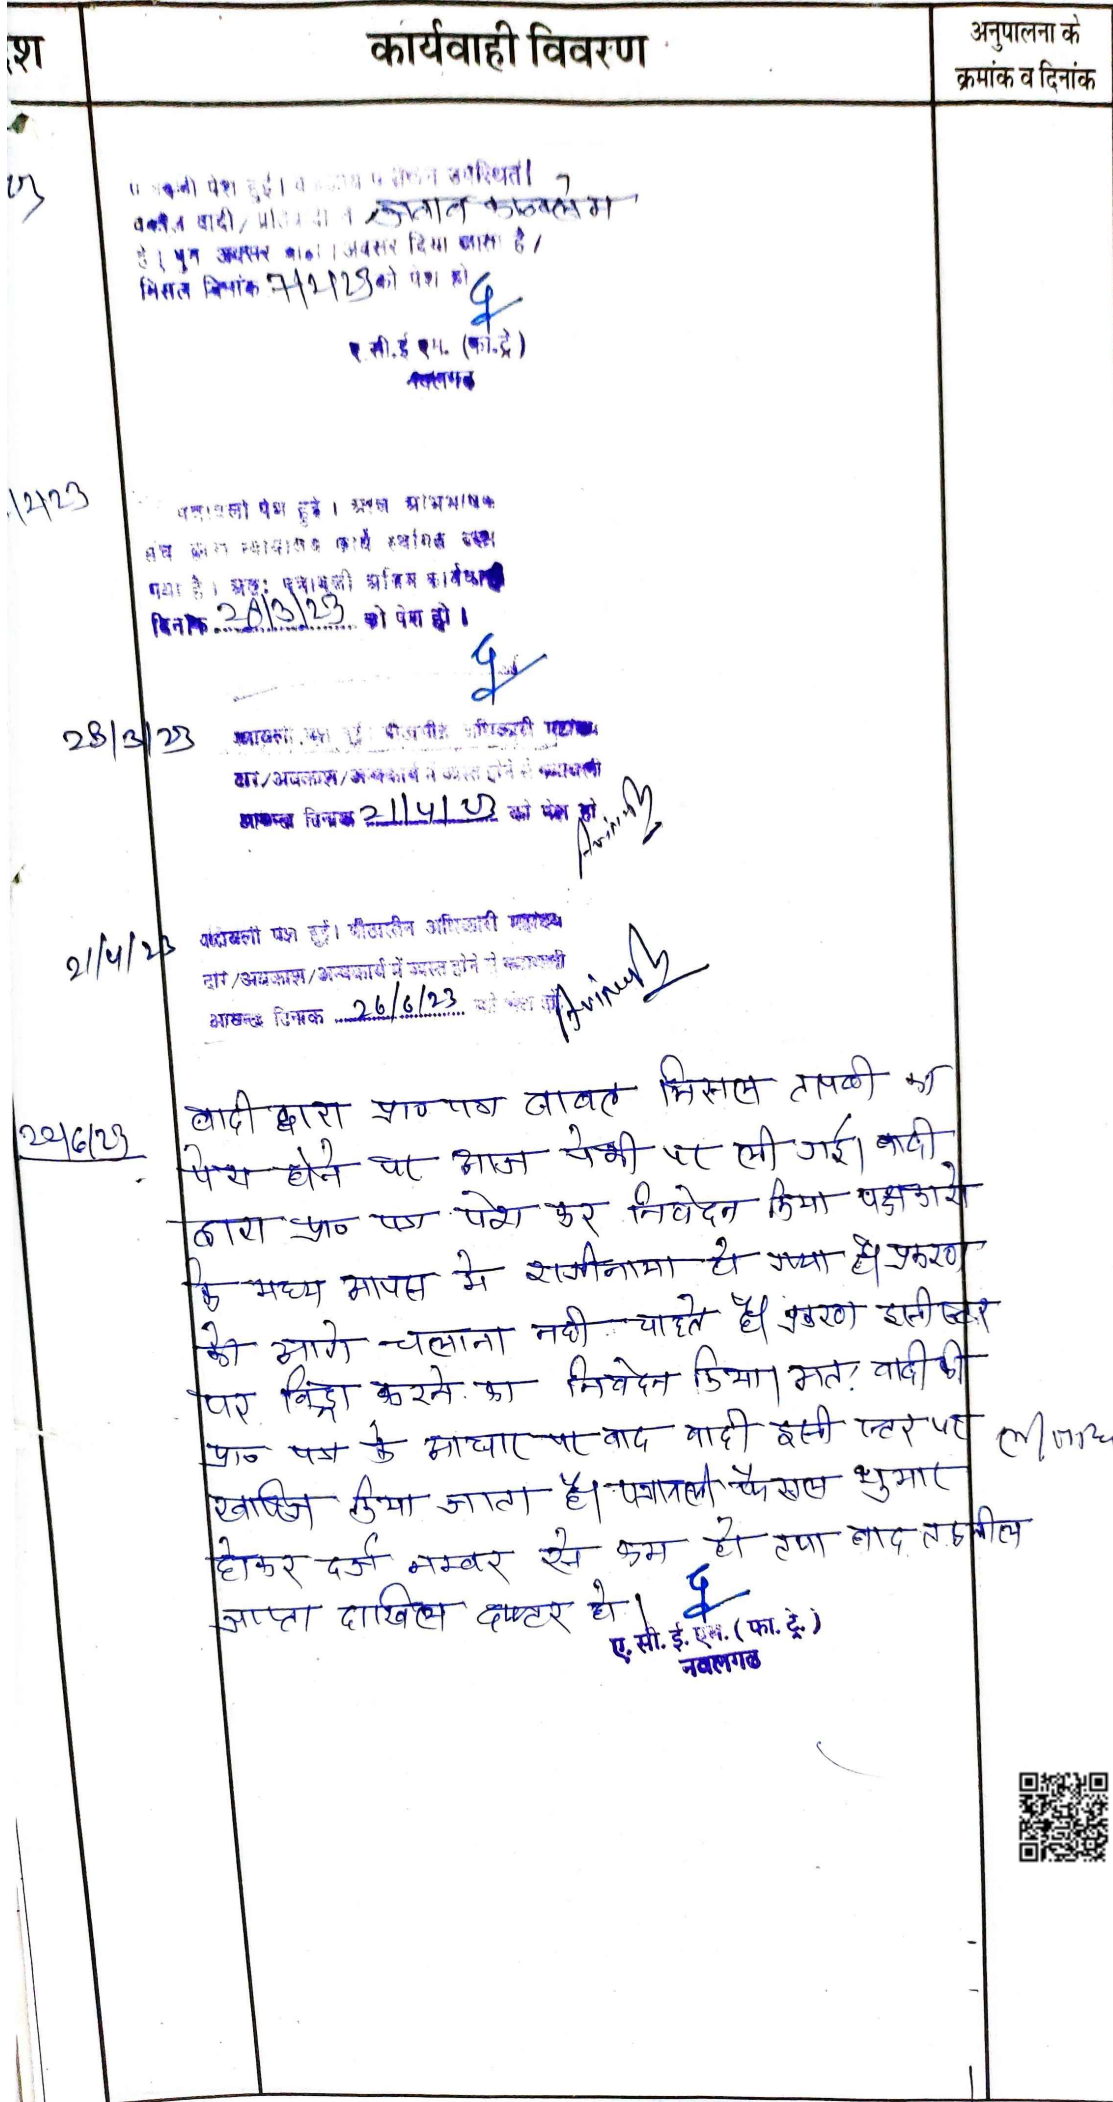 कार्यवाही विवरण
अनुपालना के
क्रमांक व दिनांक
पेश हुई। उपस्थित।
वकील वादी/
है। पुन अवसर चाहा। अवसर दिया जाता है/
मिसल दिनांक 7/2/23 को पेश हो
ए.सी.ई.एम. (फा.ट्रे.)
नवलगढ
/2/23
पत्रावली पेश हुई। अभिभाषक
संघ द्वारा न्यायालय कार्य स्थगित रखा
गया है। अतः पत्रावली अग्रिम कार्यवाही
दिनांक 28/3/23 को पेश हो।
28/3/23
पत्रावली पेश हुई। पीठासीन अधिकारी महोदय
/अवकाश/अन्यकार्य में व्यस्त होने से पत्रावली
आयन्दा दिनांक 21/4/23 को पेश हो
21/4/23
पत्रावली पेश हुई। पीठासीन अधिकारी महोदय
/अवकाश/अन्यकार्य में व्यस्त होने से पत्रावली
आयन्दा दिनांक 26/6/23 को पेश हो
22/6/23
वादी द्वारा प्रा० पत्र बाबत मिसल तलबी का
पेश होने पर आज पेशी पर ली गई। वादी
द्वारा प्रा० पत्र पेश कर निवेदन किया पक्षकारो
के मध्य आपस मे राजीनामा हो गया है। प्रकरण
को आगे चलाना नही चाहते है। प्रकरण इसी स्टर
पर विड्रा करने का निवेदन किया। अत: वादी की
प्रा० पत्र के आधार पर वाद वादी इसी स्टर पर
खारिज किया जाता है। पत्रावली फैसल शुमार
होकर दर्ज नम्बर से कम हो तथा बाद तकमील
जाप्ता दाखिल दफ्टर हो।
ए.सी.ई.एम. (फा.ट्रे.)
नवलगढ